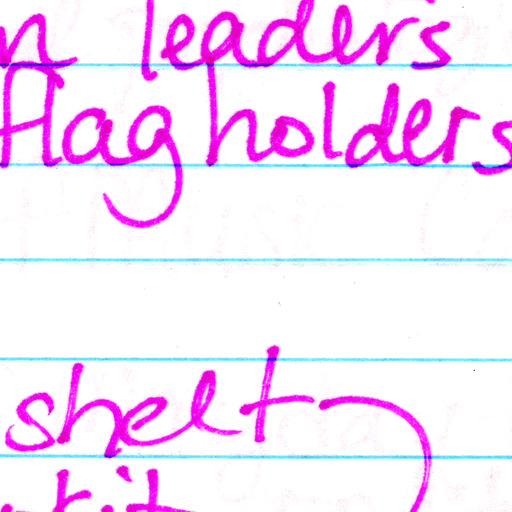 n leaders
flag holders
shelt
kit